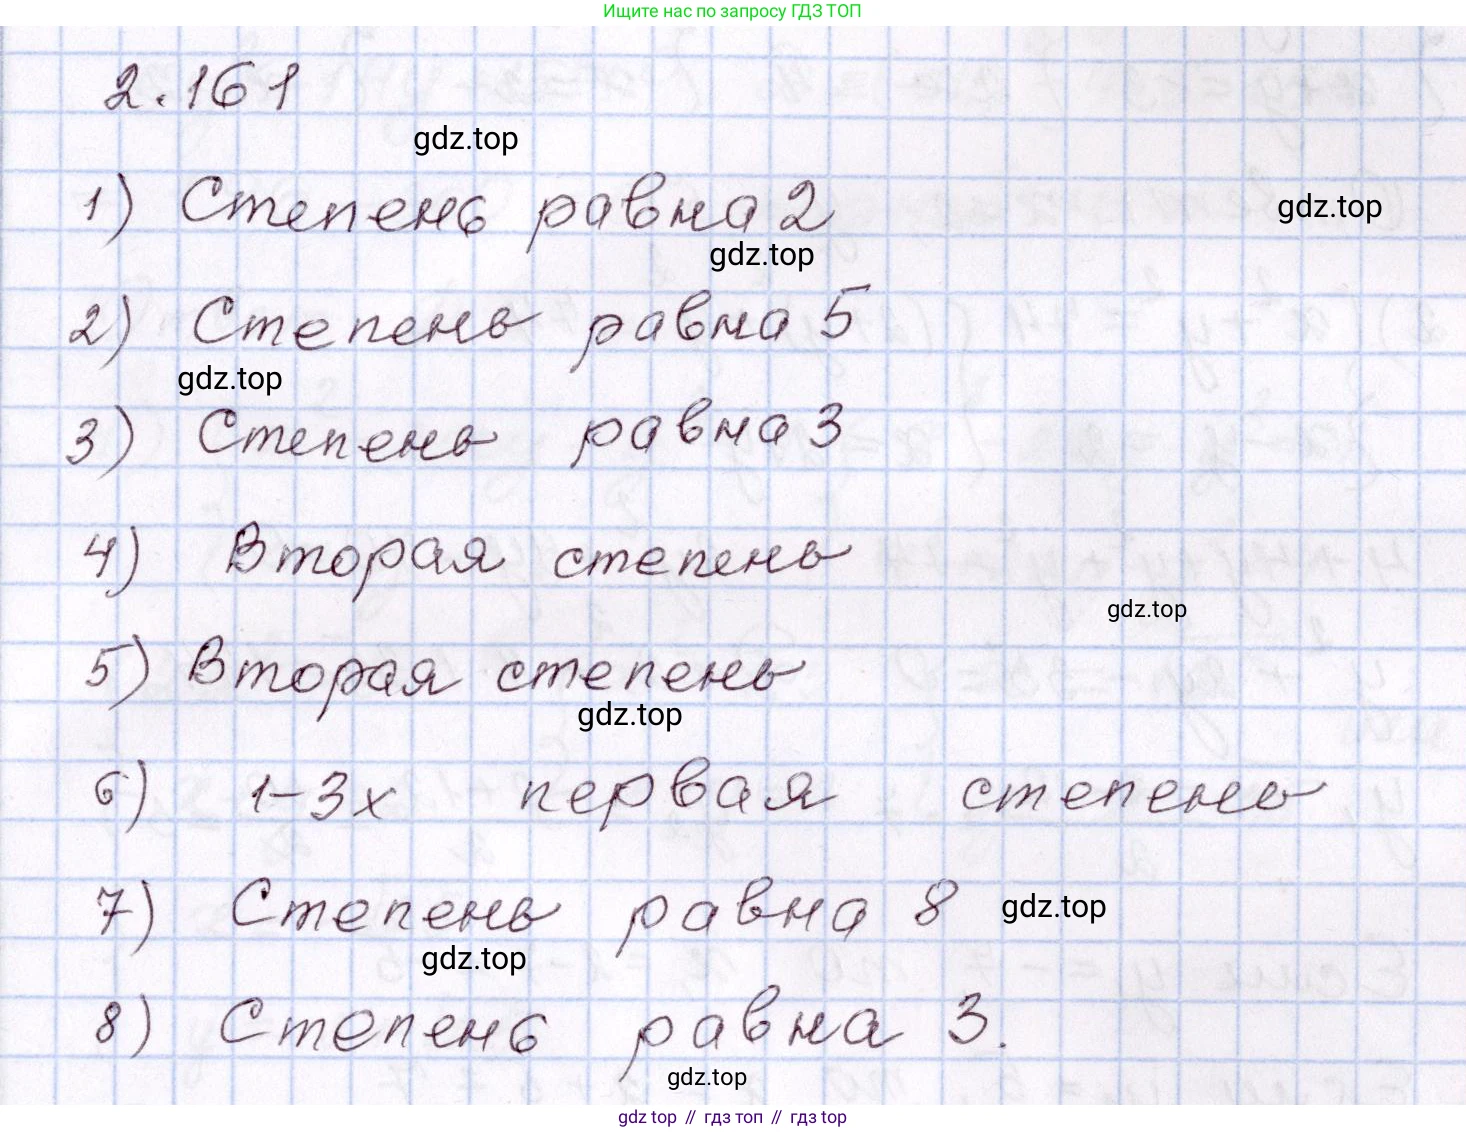 Ищите нас по запросу ГДЗ ТОП
2.161
gdz.top
1) Степень равна 2
gdz.top
gdz.top
2) Степень равна 5
gdz.top
3) Степень равна 3
4) Вторая степень
gdz.top
5) Вторая степень
gdz.top
6) 1-3x первая степень
7) Степень равна 8
gdz.top
gdz.top
8) Степень равна 3.
gdz.top
gdz top // гдз топ // гдз top